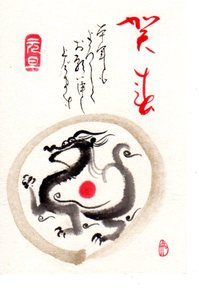 賀春
本年も
よろしく
お願い申し
上げます
元旦